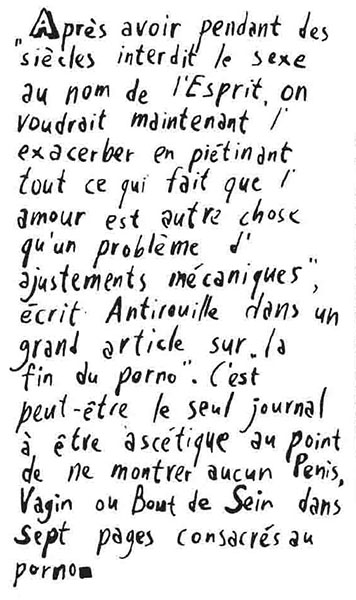 „Après avoir pendant des
siècles interdit le sexe
au nom de l'Esprit, on
voudrait maintenant l'
exacerber en piétinant
tout ce qui fait que l'
amour est autre chose
qu'un problème d'
ajustements mécaniques",
écrit Antirouille dans un
grand article sur „la
fin du porno". C'est
peut-être le seul journal
à être ascétique au point
de ne montrer aucun Penis,
Vagin ou Bout de Sein dans
sept pages consacrés au
porno■